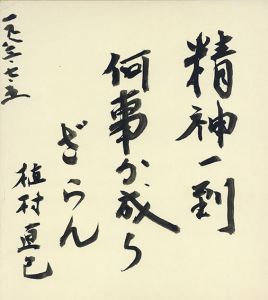 精神一到
何事か成ら
ざらん
植村直己
一九七三・七・五